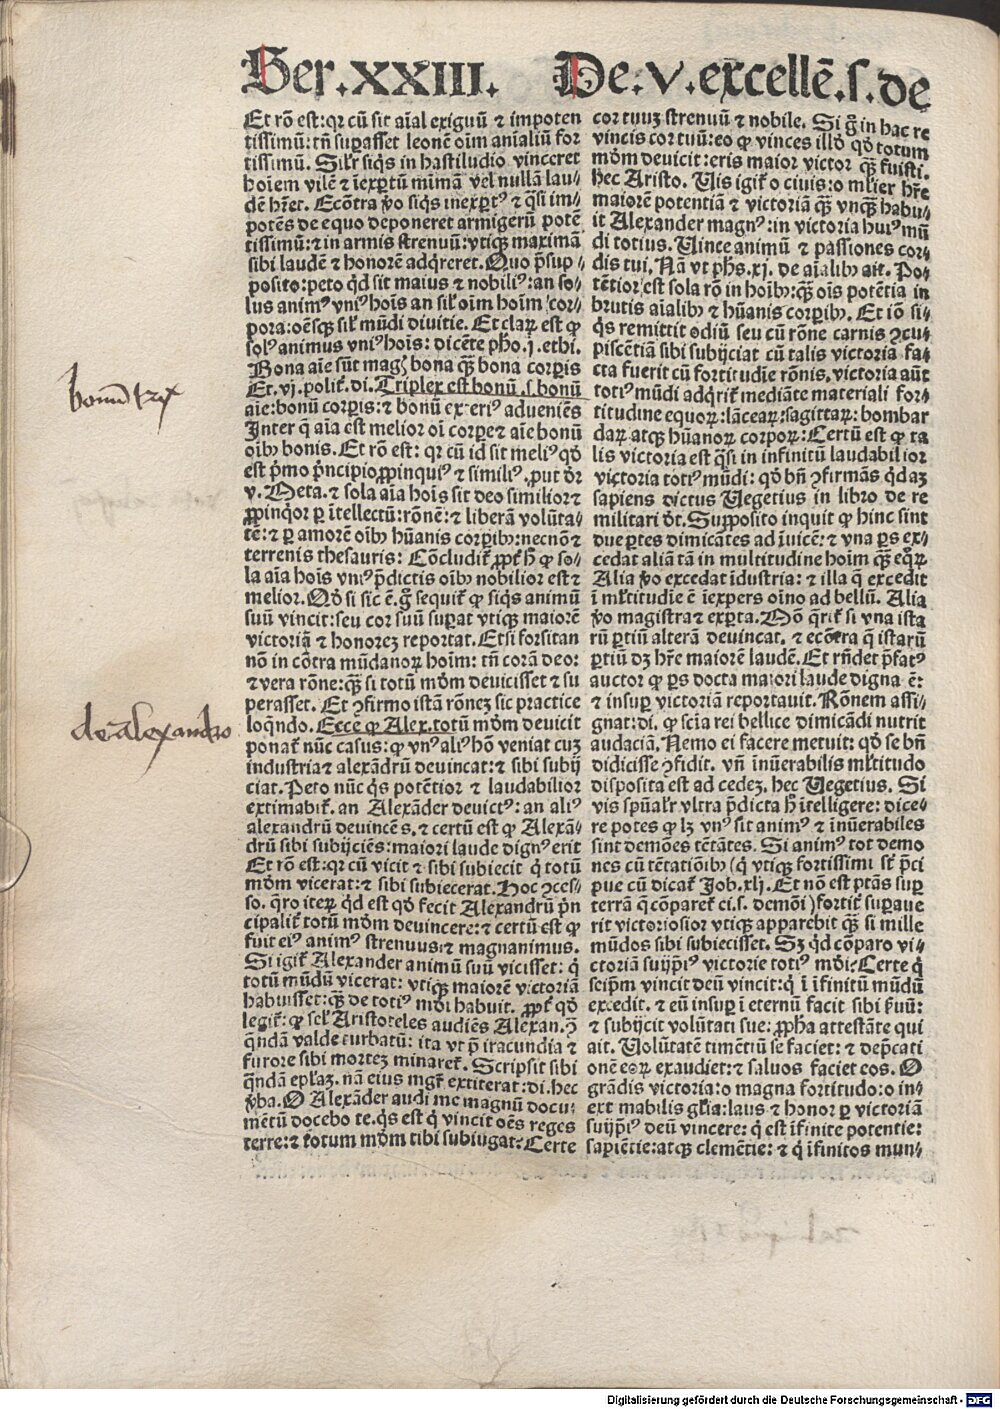 Ser.XXIII. De.V.excellē.s.de
Et rō est:qr cū sit aīal exiguū ⁊ impoten
tissimū:tn̄ suꝑasset leonē oīm aīaliū for
tissimū. Silr̄ siq̄s in hastiludio vinceret
hoīem vilē ⁊ īexꝑtū mīmā vel nullā lau⸗
dē hr̄et. Ecōtra ꝟo siq̄s inexꝑtꝰ ⁊ q̄si im⸗
potēs de equo deponeret armigerū potē
tissimū:⁊ in armis strenuū:vtiqꝫ maximā
sibi laudē ⁊ honorē adq̄reret. Quo p̄sup⸗
posito:peto qd̄ sit maius ⁊ nobiliꝰ:an so⸗
lus animꝰ vniꝰ hoīs an sil̄ oīm hoīm cor⸗
pora:oēsqꝫ sil̄ mūdi diuitie. Et claꝝ est ꝙ
solꝰ animus vniꝰ hoīs: dicēte pho.j.ethi.
Bona aīe sūt magꝭ bona qꝫ̄ bona corꝑis
Et.vj.polit̄.di.Triplex est bonū.s.bonū
aīe:bonū corꝑis:⁊ bonū exteriꝰ adueniēs
Inter q̄ aīa est melior oī corꝑe⁊ aīe bonū
oībꝰ bonis. Et rō est: qr cū id sit meliꝰ qd̄
est p̄mo p̄ncipio ꝓpinquiꝰ ⁊ similiꝰ, put dr̄
v. Meta. ⁊ sola aīa hoīs sit deo similior⁊
ꝓpinqͦor ꝑ ītellectū:rōnē:⁊ liberā volūta⸗
tē:⁊ ꝑ amorē oībꝰ hūanis corꝑibꝰ:necnō⁊
terrenis thesauris: Cōcludit̄ ꝓpt̄ h̄ ꝙ so⸗
la aīa hoīs vniꝰ p̄dictis oībꝰ nobilior est⁊
melior. Qd̄ si sic ē.g̊ sequit̄ ꝙ siq̄s animū
suū vincit:seu cor suū suꝑat vtiqꝫ maiorē
victoriā ⁊ honorez reportat. Etsi forsitan
nō in cōtra mūdanoꝝ hoīm: tn̄ corā deo:
⁊ vera rōne:qꝫ̄ si totū mōm deuicisset ⁊ su
perasset. Et ꝯfirmo istā rōnez sic practice
loqn̄do. Ecce ꝙ Alex.totū mōm deuicit
ponat̄ nūc casus:ꝙ vnꝰ aliꝰ hō veniat cuz
industria⁊ alexādrū deuincat:⁊ sibi subij
ciat. Peto nūc q̄s potētior ⁊ laudabilior
extimabit̄. an Alexāder deuictꝰ: an aliꝰ
alexandrū deuincēs.⁊ certū est ꝙ Alexā⸗
drū sibi subijciēs: maiori laude dignꝰ erit
Et rō est:qr cū vicit ⁊ sibi subiecit q̇ totū
mōm vicerat:⁊ sibi subiecerat. Hoc ꝯces⸗
so. q̄ro iteꝝ qd̄ est qd̄ fecit Alexandrū p̄n
cipalit̄ totū mōm deuincere:⁊ certū est ꝙ
fuit eiꝰ animꝰ strenuus:⁊ magnanimus.
Si igit̄ Alexander animū suū vicisset: q̇
totū mūdū vicerat: vtiqꝫ maiorē victoriā
habuisset:qꝫ̄ de totiꝰ mōi habuit. ꝓpt̄ qd̄
legit̄:ꝙ sel̄ Aristoteles audiēs Alexan.ꝯ̄
q̄ndā valde turbatū: ita vt p̄ iracundia ⁊
furore sibi mortez minaret̄. Scripsit sibi
q̄ndā ep̄laz. nā eius mgr̄ extiterat:di.hec
ꝟba. O Alexāder audi me magnū docu⸗
mētū docebo te.q̄s est q̇ vincit oēs reges
terre:⁊ totum mōm tibi subiugat: Certe
cor tuuz strenuū ⁊ nobile. Si g̊ in hac re
vincis cor tuū:eo ꝙ vinces illd̄ qd̄ totum
mōm deuicit:eris maior victor qꝫ̄ fuisti.
hec Aristo. Uis igit̄ o ciuis:o ml̄ier hr̄e
maiorē potentiā ⁊ victoriā qꝫ̄ vnqꝫ̄ habu⸗
it Alexander magnꝰ:in victoria huiꝰ mū
di totius. Uince animū ⁊ passiones cor⸗
dis tui. Nā vt phs.xj. de aīalibꝰ ait. Po⸗
tētior est sola rō in hoībꝰ:qꝫ̄ oīs potētia in
brutis aīalibꝰ ⁊ hūanis corꝑibꝰ. Et iō si⸗
q̄s remittit odiū seu cū rōne carnis ꝯcu⸗
piscētiā sibi subijciat cū talis victoria fa⸗
cta fuerit cū fortitudīe rōnis, victoria aūt
totiꝰ mūdi adq̄rit̄ mediāte materiali for⸗
titudine equoꝝ:lāceaꝝ:sagittaꝝ: bombar
daꝝ atqꝫ hūanoꝝ corpoꝝ:Certū est ꝙ ta
lis victoria est q̄si in infinitū laudabilior
victoria totiꝰ mūdi: qd̄ bn̄ ꝯfirmās qd̄az
sapiens dictus Uegetius in libro de re
militari dt̄. Supposito inquit ꝙ hinc sint
due ꝑtes dimicātes ad īuicē:⁊ vna ꝑs ex⸗
cedat aliā tā in multitudine hoīm qꝫ̄ eq̊ꝝ
Alia ꝟo excedat īdustria: ⁊ illa q̄ excedit
ī ml̄titudīe ē īexpers oīno ad bellū. Alia
ꝟo magistra⁊ exꝑta. Mō q̄rit̄ si vna ista
rū ꝑtiū alterā deuincat. ⁊ ecōtra q̄ istarū
ꝑtiū dꝫ hr̄e maiorē laudē. Et rn̄det p̄fatꝰ
auctor ꝙ ꝑs docta maiori laude digna ē:
⁊ insuꝑ victoriā reportauit. Rōnem assi⸗
gnat:di. ꝙ scīa rei bellice dimicādi nutrit
audaciā. Nemo ei facere metuit: qd̄ se bn̄
didicisse ꝯfidit. vn̄ inūerabilis ml̄titudo
disposita est ad cedez. hec Uegetius. Si
vis spūalr̄ vltra p̄dicta h̄ ītelligere: dice⸗
re potes ꝙ lꝫ vnꝰ sit animꝰ ⁊ inūerabiles
sint demōes tētātes. Si animꝰ tot demo
nes cū tētatiōibꝰ (q̇ vtiqꝫ fortissimi st̄ p̄ci
pue cū dicat̄ Job.xlj. Et nō est ptās suꝑ
terrā q̄ cōparet̄ ei.s. demōi) fortit̄ suꝑaue
rit victoriosior vtiqꝫ apparebit qꝫ̄ si mille
mūdos sibi subiecisset. Sꝫ qd̄ cōparo vi⸗
ctoriā suijp̄iꝰ victorie totiꝰ mōi: Certe q̇
seip̄m vincit deū vincit:q̇ ī īfinitū mūdū
excedit. ⁊ eū insuꝑ ī eternū facit sibi ẜuū:
⁊ subijcit volūtati sue: ꝓpha attestāte qui
ait. Uolūtatē timētiū se faciet: ⁊ dep̄cati
onē eoꝝ exaudiet:⁊ saluos faciet eos. O
grādis victoria:o magna fortitudo:o in⸗
extimabilis gl̄ia:laus ⁊ honor ꝑ victoriā
suijp̄iꝰ deū vincere: q̇ est īfinite potentie:
sapiētie:atqꝫ clemētie: ⁊ q̇ īfinitos mun⸗
de alexandro
Digitalisierung gefördert durch die Deutsche Forschungsgemeinschaft - DFG